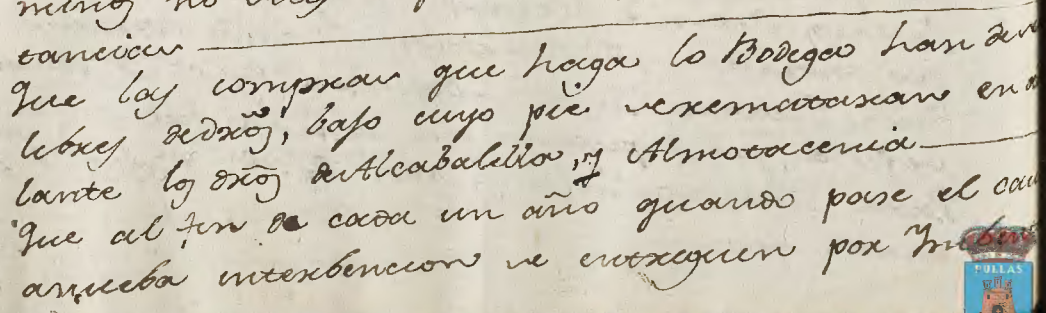 tancias
Que las compras que haga la Bodega han de
libres de dros, bajo cuyo pie se remataran en
lante los dros de Alcabalilla, y Almotacenia
Que al fin de cada un año quando pase el
a nueba interbencion se entreguen por
PULLAS